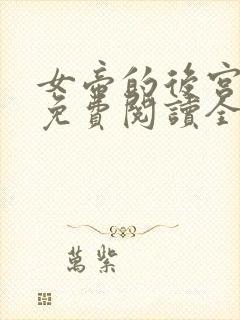 女帝的後宮
免費閱讀全
萬紫